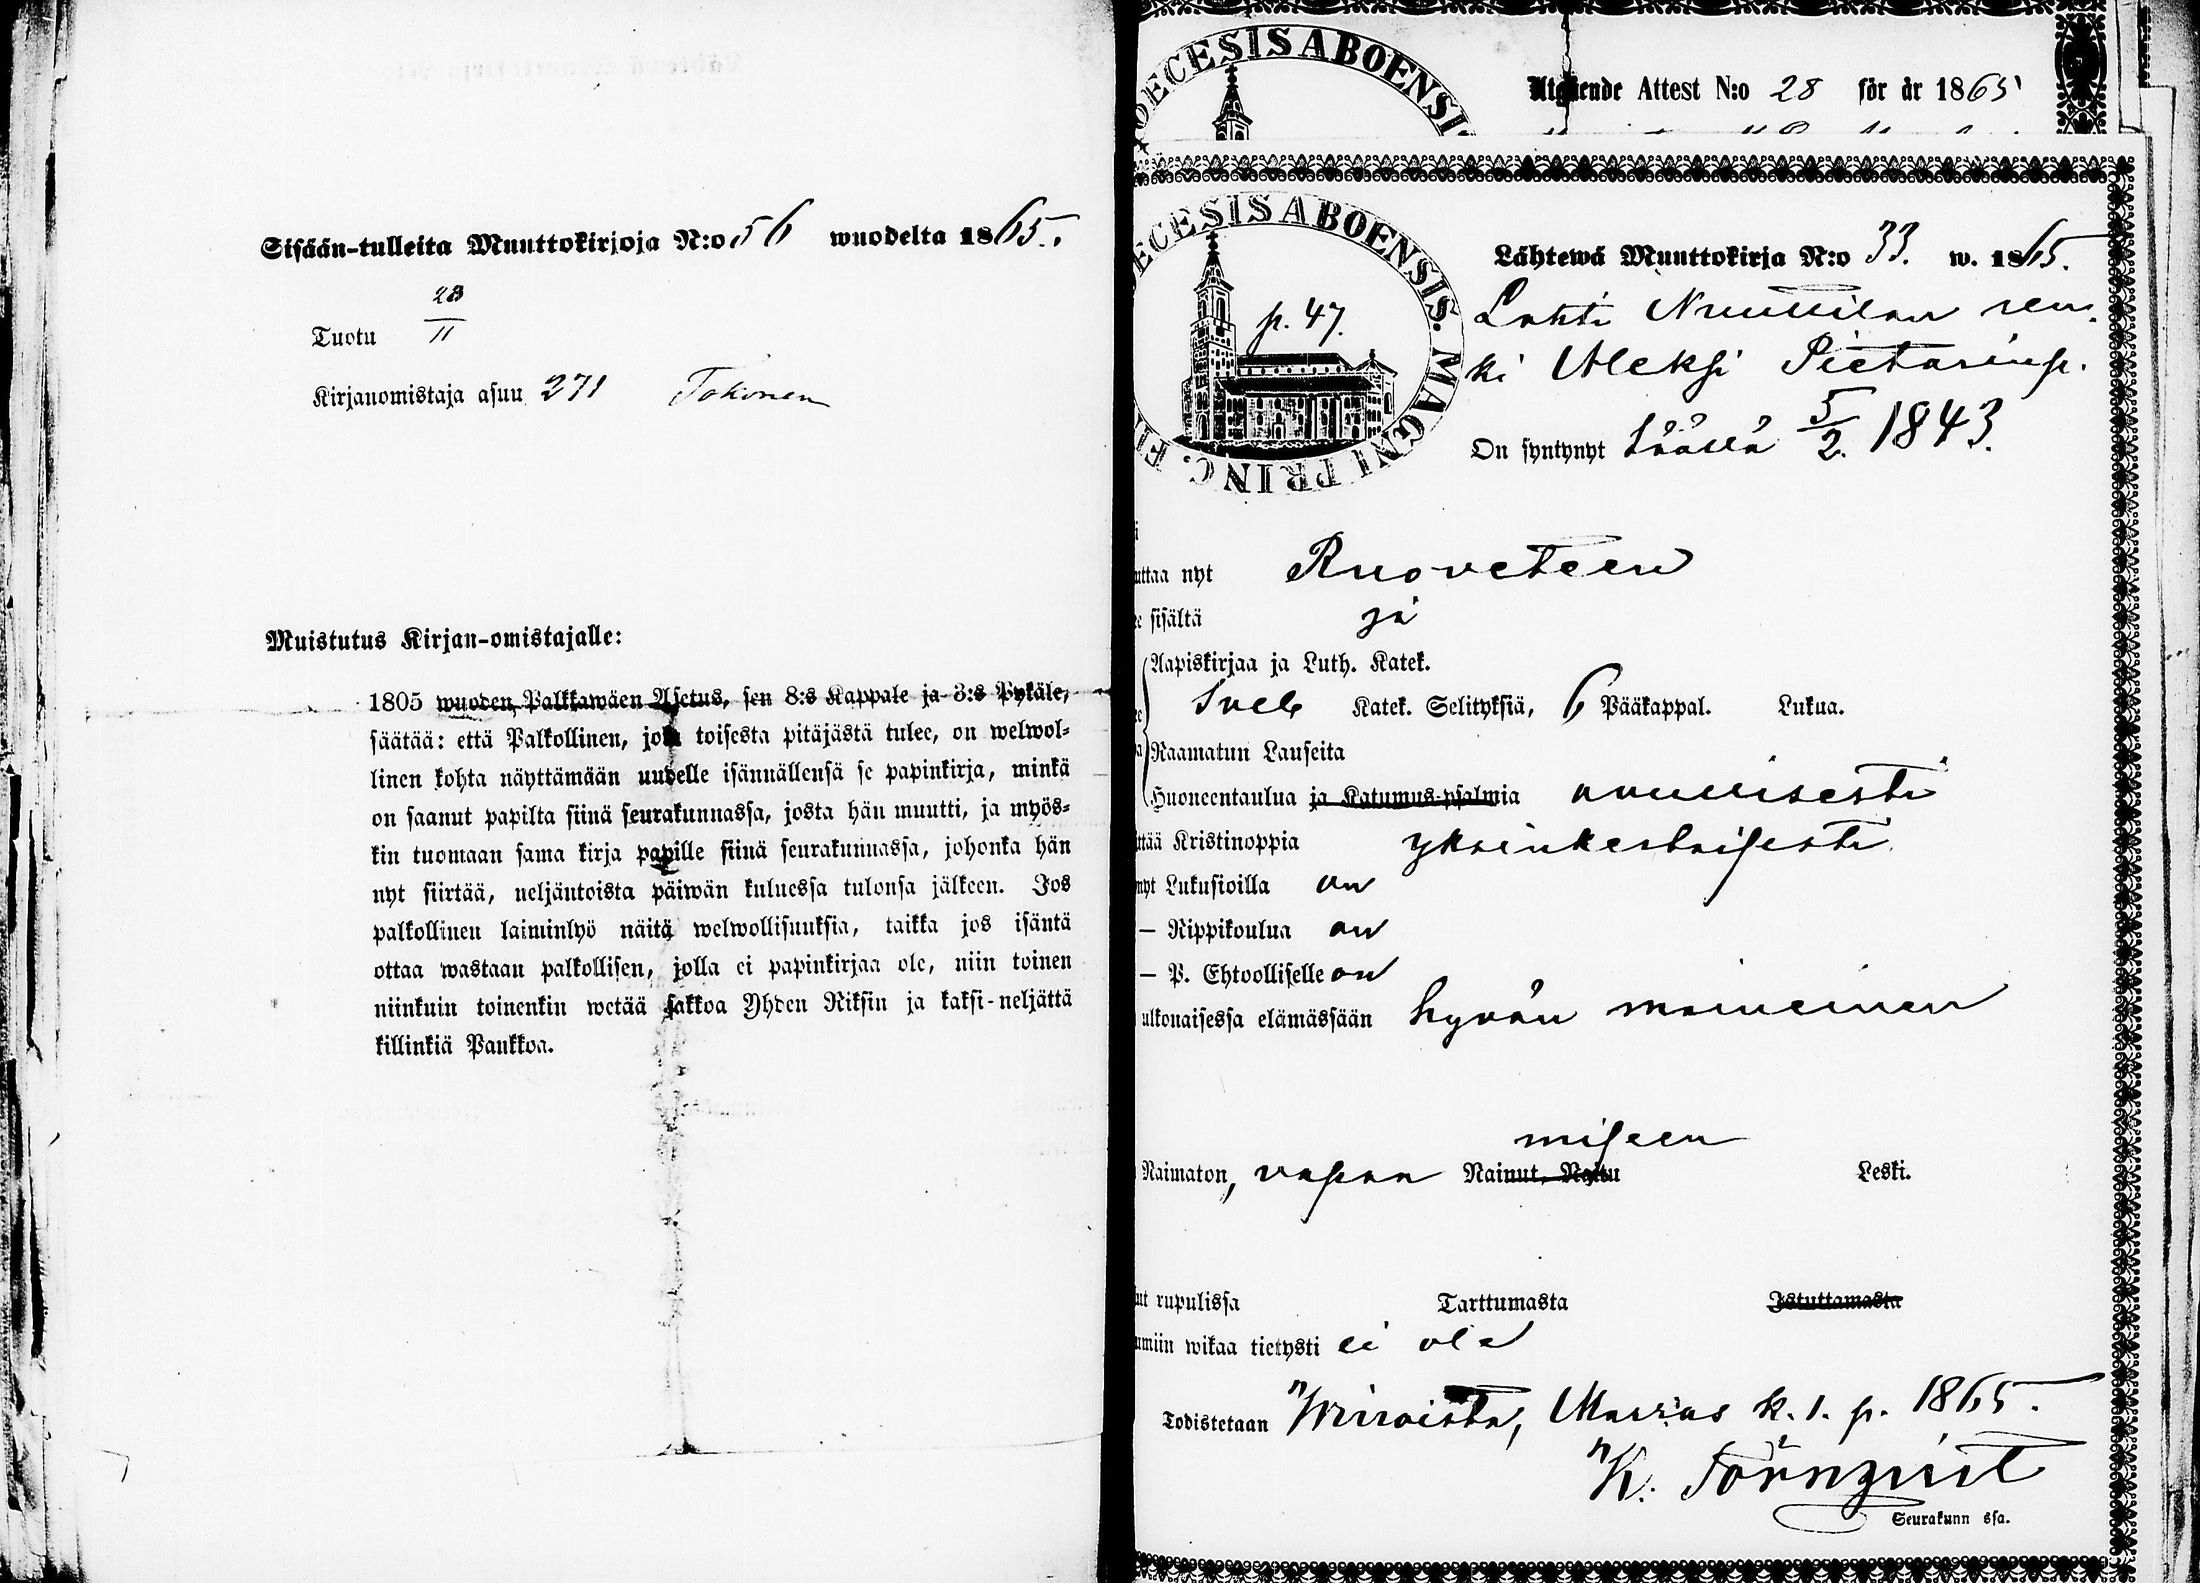 Sisään-tulleita Muuttokirjoja N:o 56 wuodelta 1865.
28
11
Tuotu
Kirjanomistaja asuu 271 Tokonen
Muistutus Kirjan-omistajalle:
1805 wuoden Palkkawäen Asetus, sen 8:s Kappale ja 3:s Pykäle,
säätää: että Palkollinen, joka toisesta pitäjästä tulee, on welwol-
linen kohta näyttämään uudelle isännällensä se papinkirja, minkä
on saanut papilta siinä seurakunnassa, josta hän muutti, ja myös-
kin tuomaan sama kirja papille siinä seurakunnassa, johonka hän
nyt siirtää, neljäntoista päiwän kuluessa tulonsa jälkeen. Jos
palkollinen laiminlyö näitä welwollisuuksia, taikka jos isäntä
ottaa wastaan palkollisen, jolla ei papinkirjaa ole, niin toinen
niinkuin toinenkin wetää sakkoa Yhden Riksin ja kaksi-neljättä
killinkiä Pankkoa.
OECESIS ABOENSI
Utgående Attest N:o 28 för år 1865
ECESIS ABOENSIS. MAGNI PRINC. FI
p. 47.
Lähtewä Muuttokirja N:o 33. w. 1865.
Lahti Nuuttilan ren-
ki Aleksi Pietarinp.
On syntynyt täällä 5/2. 1843.
uttaa nyt Ruoveteen
sisältä ja
Aapiskirjaa ja Luth. Katek.
Sveb Katek. Selityksiä, 6 Pääkappal. Lukua.
Raamatun Lauseita
Huoneentaulua ja Katumus-psalmia auttavisesti
ttää Kristinoppia yksinkertaisesti
nyt Lukusioilla on
— Rippikoulua on
— P. Ehtoolliselle on
ulkonaisessa elämässään hyvän maineinen
miseen
Naimaton, vapaa Nainut, Naitu Leski.
ut rupulissa Tarttumasta Istuttamasta
umiin wikaa tietysti ei ole
Todistetaan Wirroista, Marras k. 1. p. 1865.
K. Törnqvist
Seurakunn ssa.